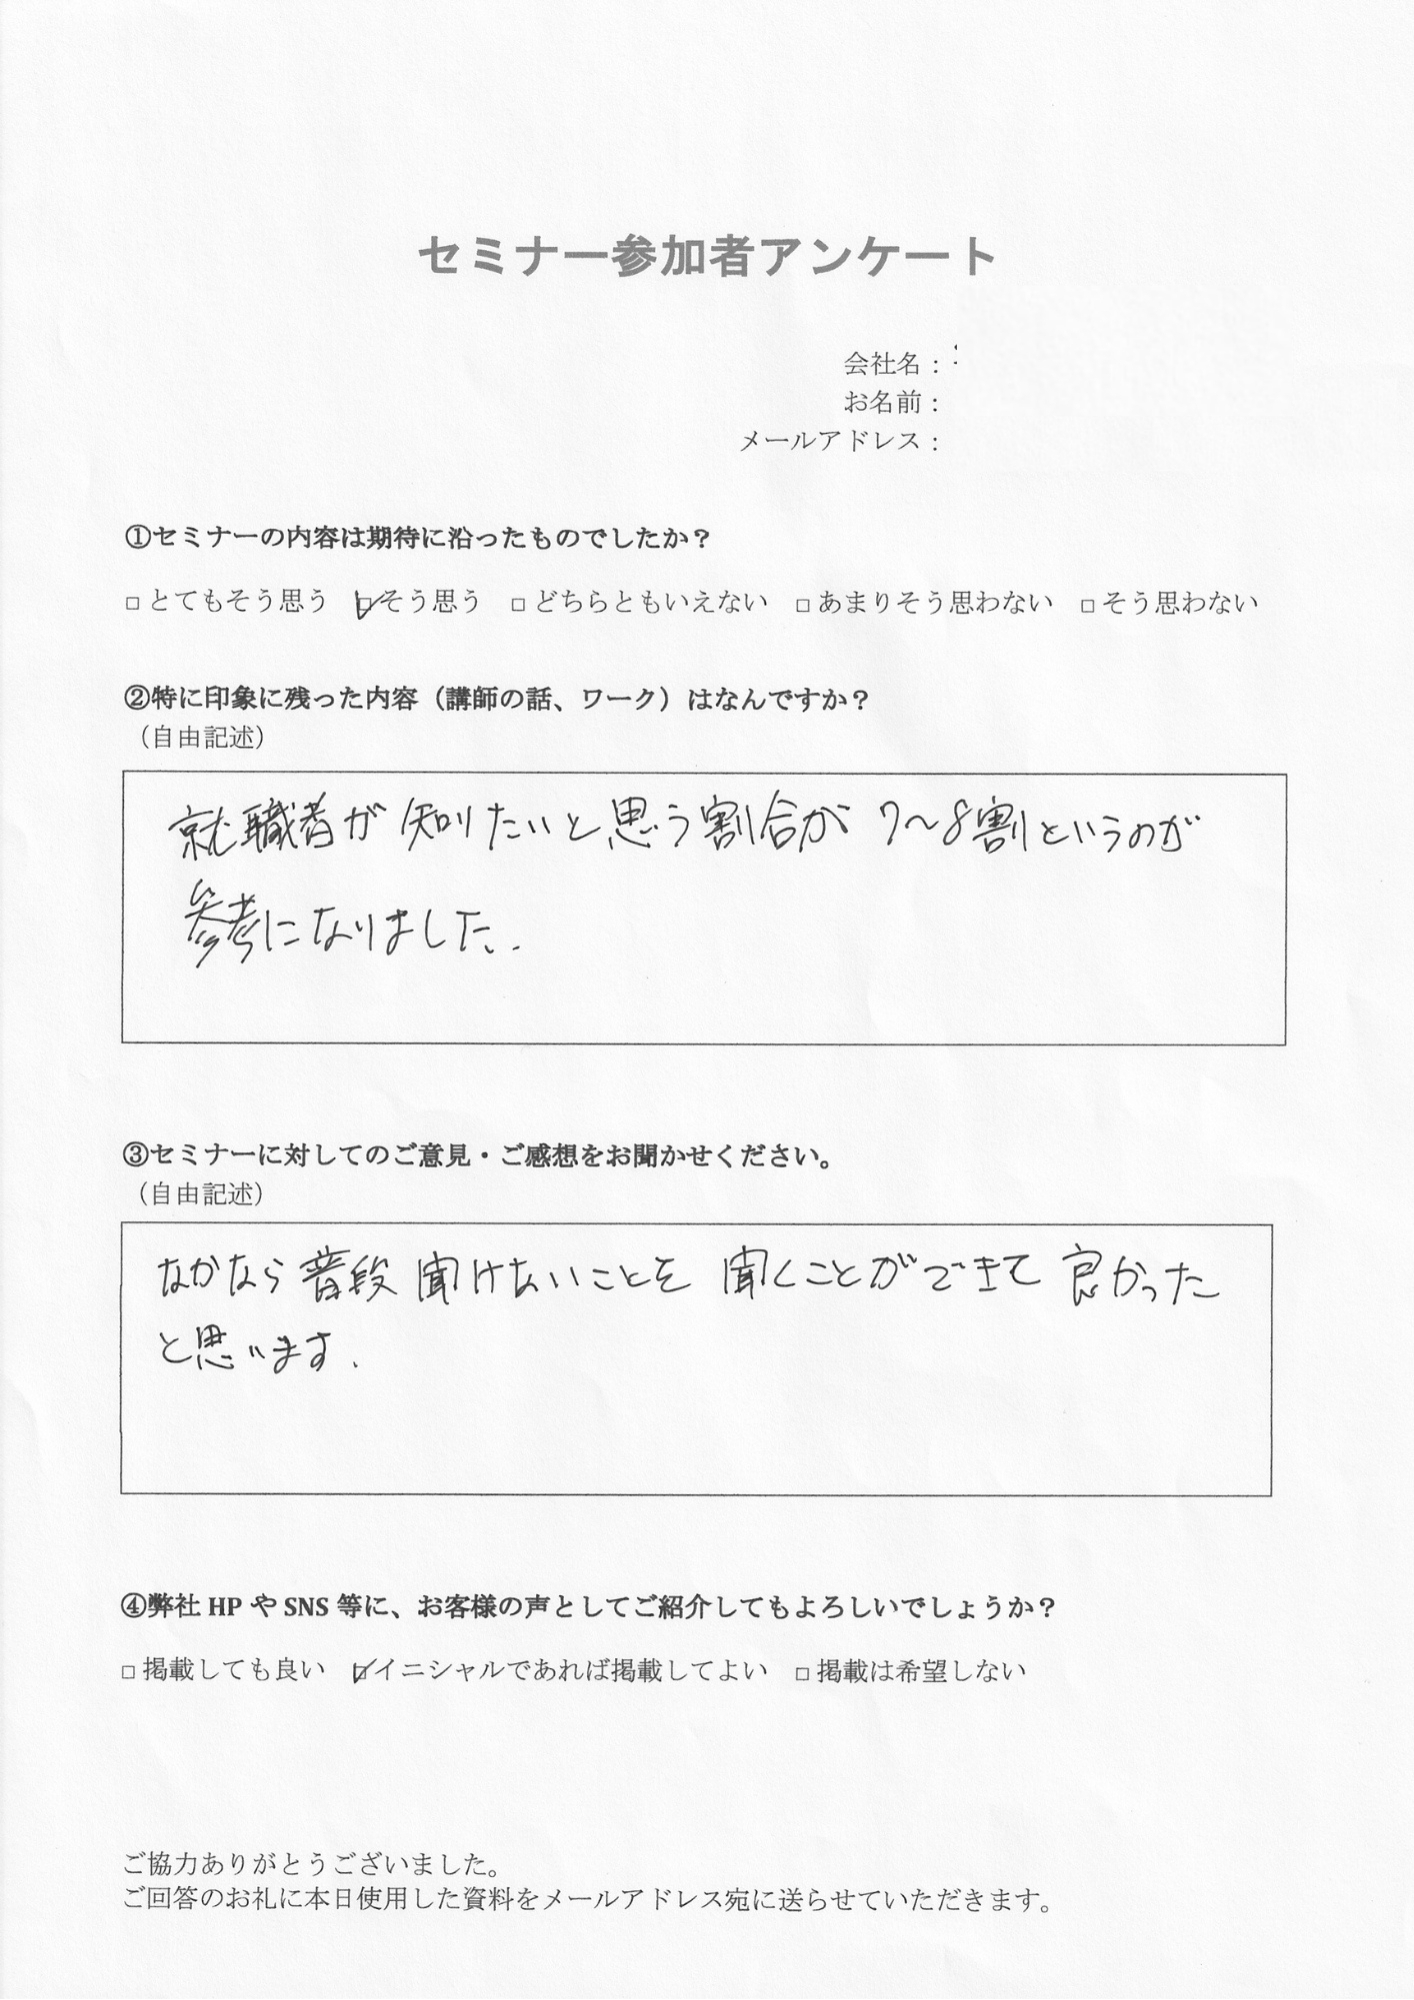 セミナー参加者アンケート
会社名：
お名前：
メールアドレス：
①セミナーの内容は期待に沿ったものでしたか？
□とてもそう思う ☑そう思う □どちらともいえない □あまりそう思わない □そう思わない
②特に印象に残った内容（講師の話、ワーク）はなんですか？
（自由記述）
就職者が知りたいと思う割合が 7～8割というのが
参考になりました.
③セミナーに対してのご意見・ご感想をお聞かせください。
（自由記述）
なかなら普段聞けないことを聞くことができて良かった
と思います.
④弊社 HP や SNS 等に、お客様の声としてご紹介してもよろしいでしょうか？
□掲載しても良い ☑イニシャルであれば掲載してよい □掲載は希望しない
ご協力ありがとうございました。
ご回答のお礼に本日使用した資料をメールアドレス宛に送らせていただきます。